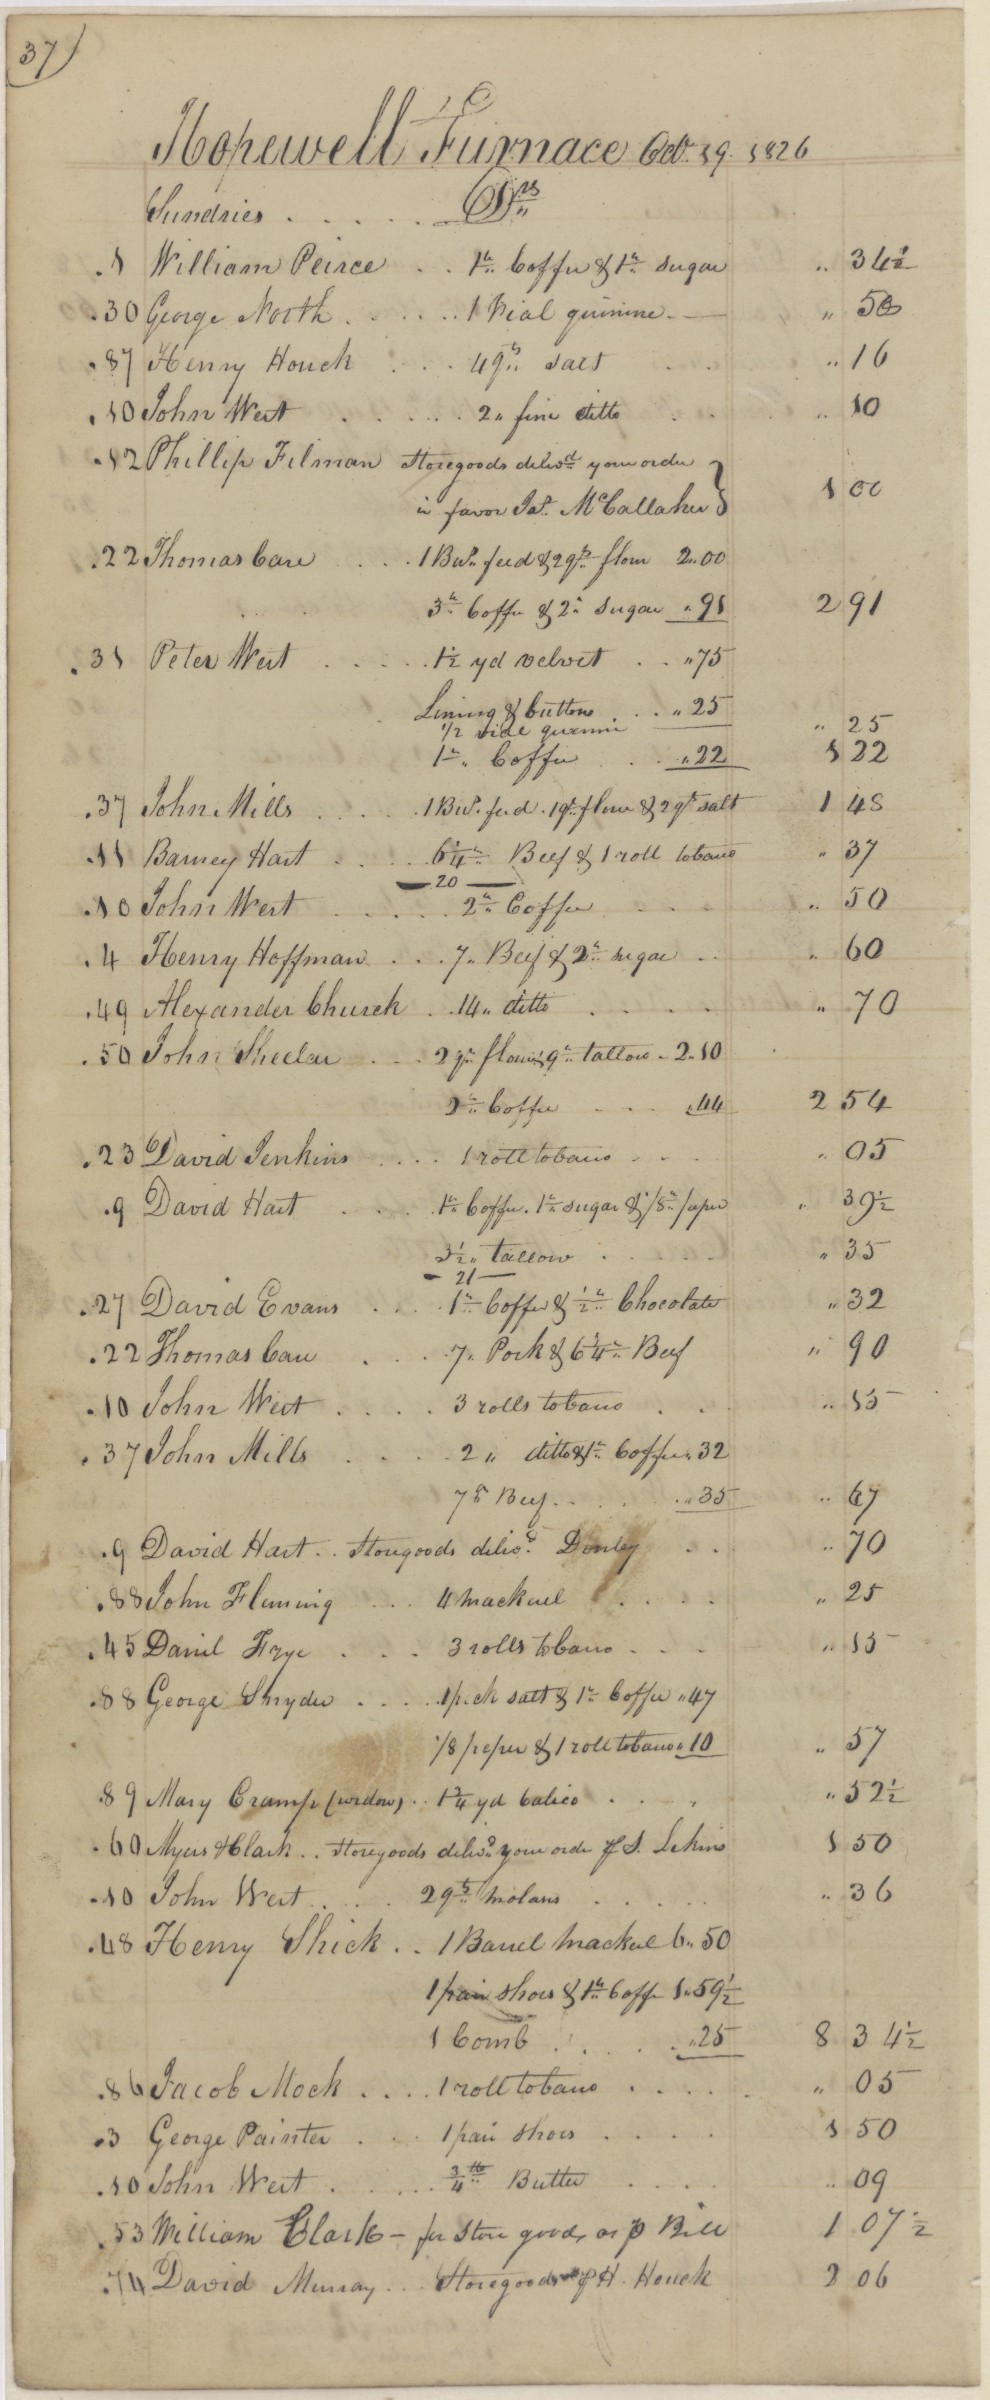 37)
Hopewell Furnace Oct. 19. 1826
Sundries . . . . . Drs
.1 William Peirce . . 1 lb Coffee & 1 lb sugar " 34½
.30 George North . . . . . 1 Vial quinine — " 50
.87 Henry Houck . . . 4 qts salt . . " 16
.10 John West . . . . . 2 " fine ditto . . " 10
.12 Phillip Filman Storegoods delivd your order
in favor Jas. McCallaher } 1 00
.22 Thomas Care . . . 1 Bus. feed & 29 lb flour 2.00
3 lb Coffee & 2 lb sugar " 91 2 91
.31 Peter West . . . . 1½ yd velvet . . " 75
Lining & buttons . . . " 25
1/2 vide " 25
1 lb Coffee . . " 22 1 22
.37 John Mills . . . . 1 Bus. feed . 1 qr flour & 2 qts salt 1 48
.11 Barney Hart . . . . 6¼ lb Beef & 1 roll tobacco " 37
— 20 —
.10 John West . . . . . 2 lb Coffee . . . " 50
.4 Henry Hoffman . . . 7 " Beef & 2 lb sugar . . " 60
.49 Alexander Church . . 14 " ditto . . . . " 70
.50 John Sheeler . . . 2 qr flour & 9 lb tallow - 2.10
2 lb Coffee . . . . " 44 2 54
.23 David Jenkins . . . . 1 roll tobacco . . . " 05
.9 David Hart . . . . 1 lb Coffee . 1 lb sugar & 1/8 lb peper " 39½
3½ " tallow . . . . . " 35
— 21 —
.27 David Evans . . . . 1 lb Coffee & ½ lb Chocolate " 32
.22 Thomas Care . . . . 7 " Pork & 6¼ lb Beef " 90
.10 John West . . . . . 3 rolls tobacco . . " 15
.37 John Mills . . . . 2 " ditto & 1 lb Coffee " 32
7 lb Beef . . . . " 35 " 67
.9 David Hart . . Storegoods delivd. Donley . . " 70
.88 John Fleming . . . 4 mackrel . . . . " 25
.45 Daniel Frye . . . 3 rolls tobacco . . . " 15
.88 George Snyder . . . . 1 peck salt & 1 lb Coffee " 47
1/8 peper & 1 roll tobacco " 10 " 57
.89 Mary Cramp (widow) . . 1¾ yd Calico . . . . " 52½
.60 Myers & Clark . . Storegoods delivd your order of S. Lekins 1 50
.10 John West . . . . 2 qts molases . . . . . " 36
.48 Henry Shick . . 1 Barrel mackrel 6.50
1 pair shoes & 1 lb Coffee 1.59½
1 Comb . . . . . " 25 8 34½
.86 Jacob Mock . . . . 1 roll tobacco . . . . . " 05
.3 George Painter . . . 1 pair shoes . . . . 1 50
.10 John West . . . . . ¾ lb Butter . . . . " 09
.53 William Clark — for Store goods, as p Bill 1 07½
.74 David Murray . . . Storegoods of H. Houck 2 06